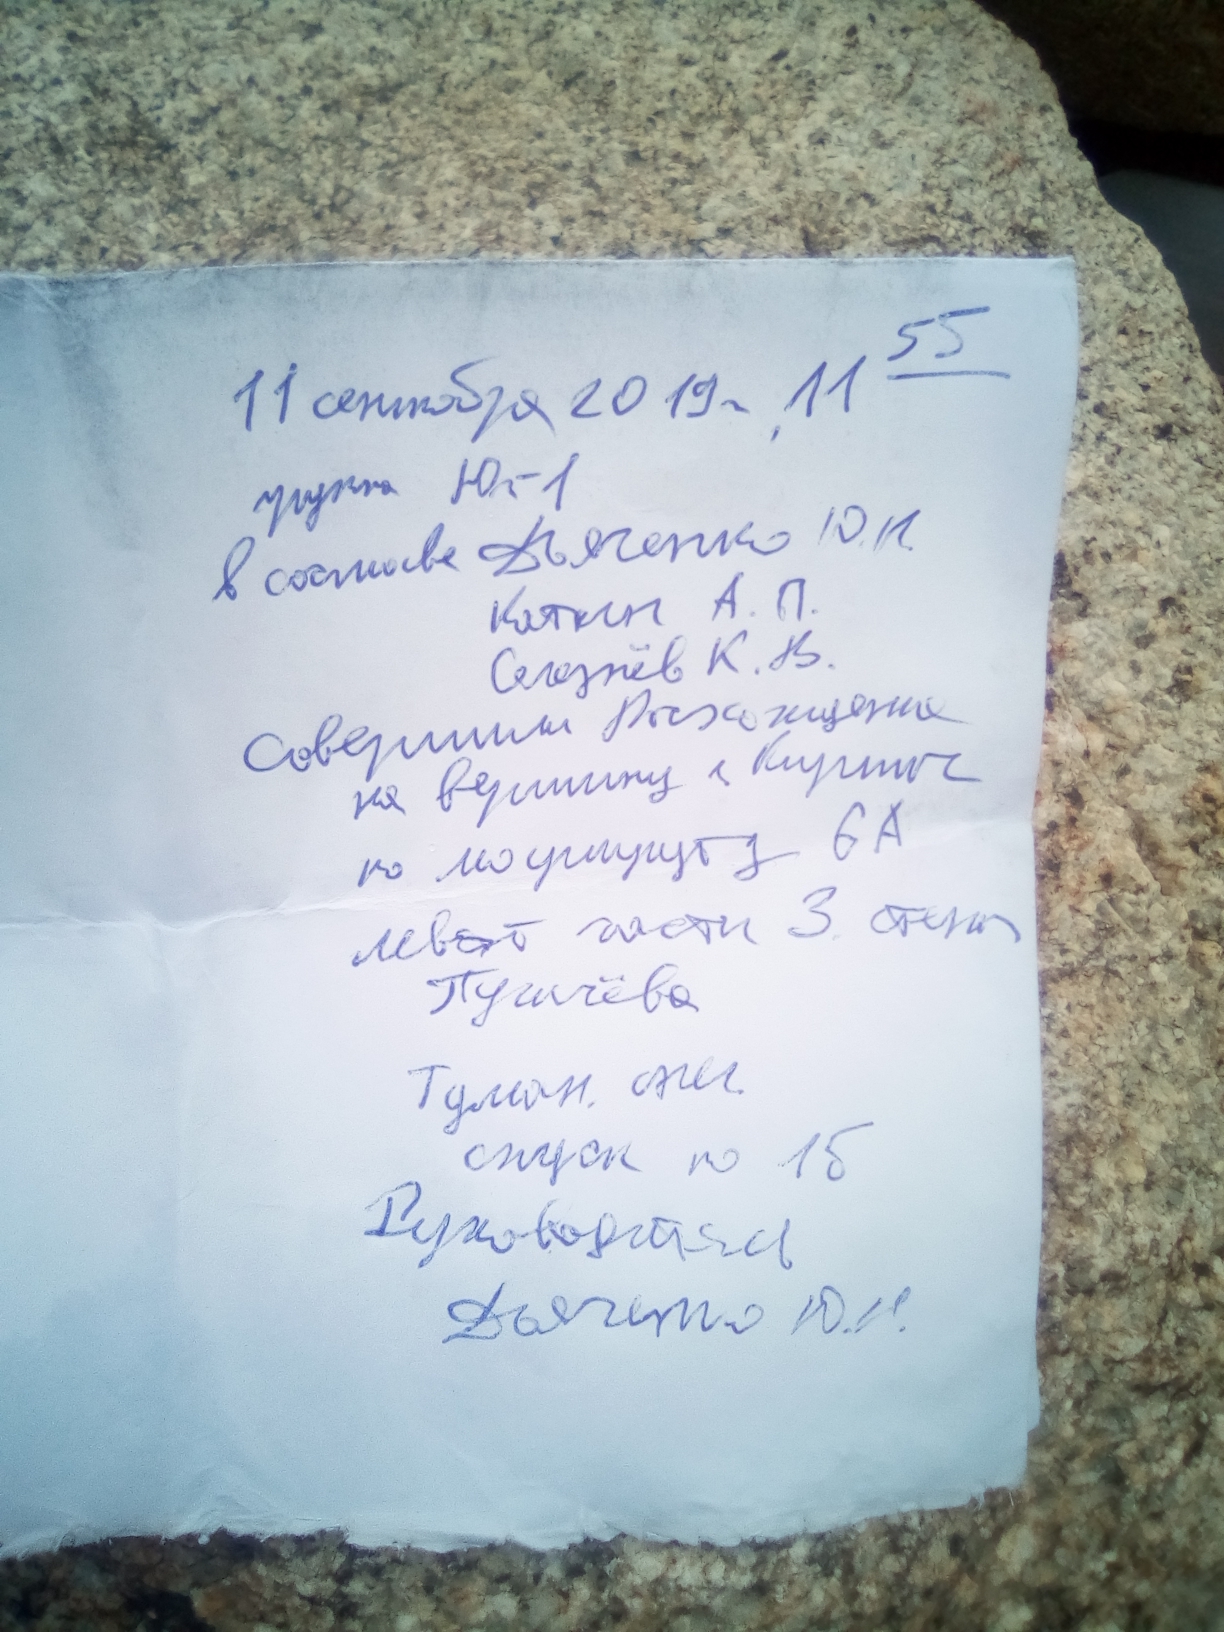 11 сентября 2019г, 11 55
группа Юг-1
в составе Дьяченко Ю.Н.
Каткин А.П.
Селезнёв К.В.
совершили Восхождение
на вершину г. Кирпич
по маршруту 6А
левой части З. стены
Пугачёва
Туман. снег.
спуск по 1б
Руководитель
Дьяченко Ю.Н.